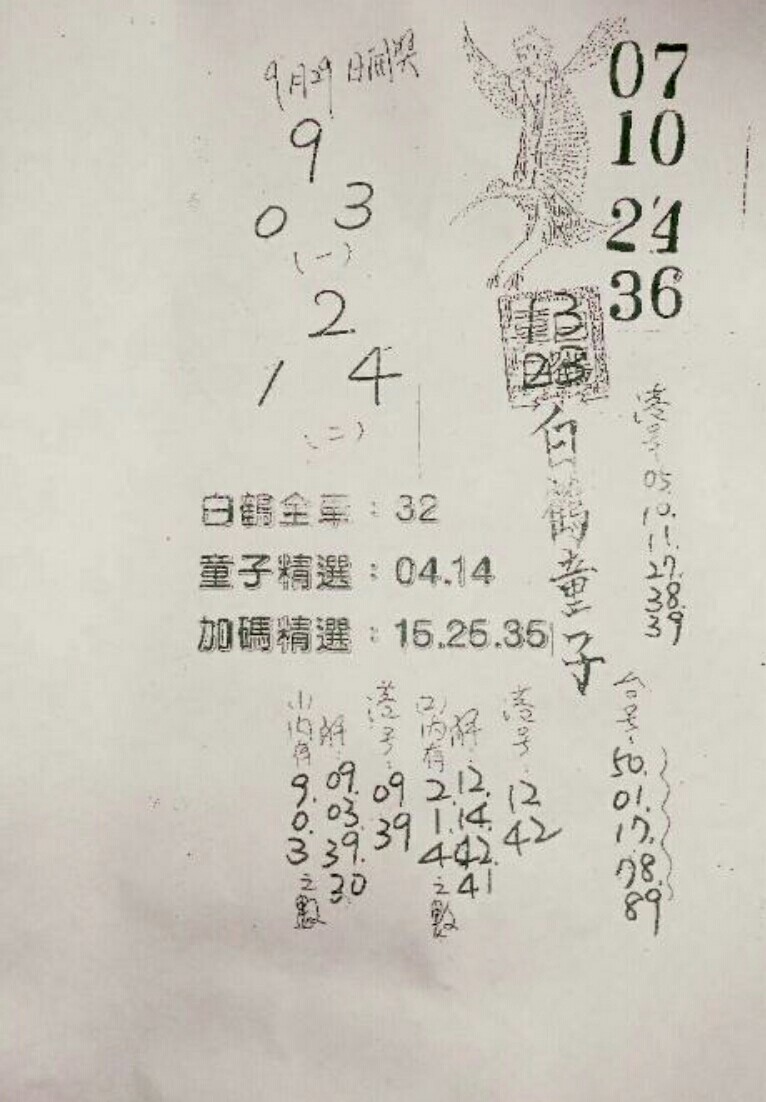 9月29日開獎
9
0 3
(一)
2
1 4
(二)
07
10
24
36
13
28
白鶴童子
港号
05.
10.
11.
27.
38.
39
白鶴全車：32
童子精選：04.14
加碼精選：15.25.35
(1)內有
9.
0.
3
之數
解：
09.
03.
39.
30
港号：
09
39
(2)內有
2.
1.
4
之數
解：
12.
14.
42.
41
港号：
12
42
台号：
50.
01.
17.
78.
89